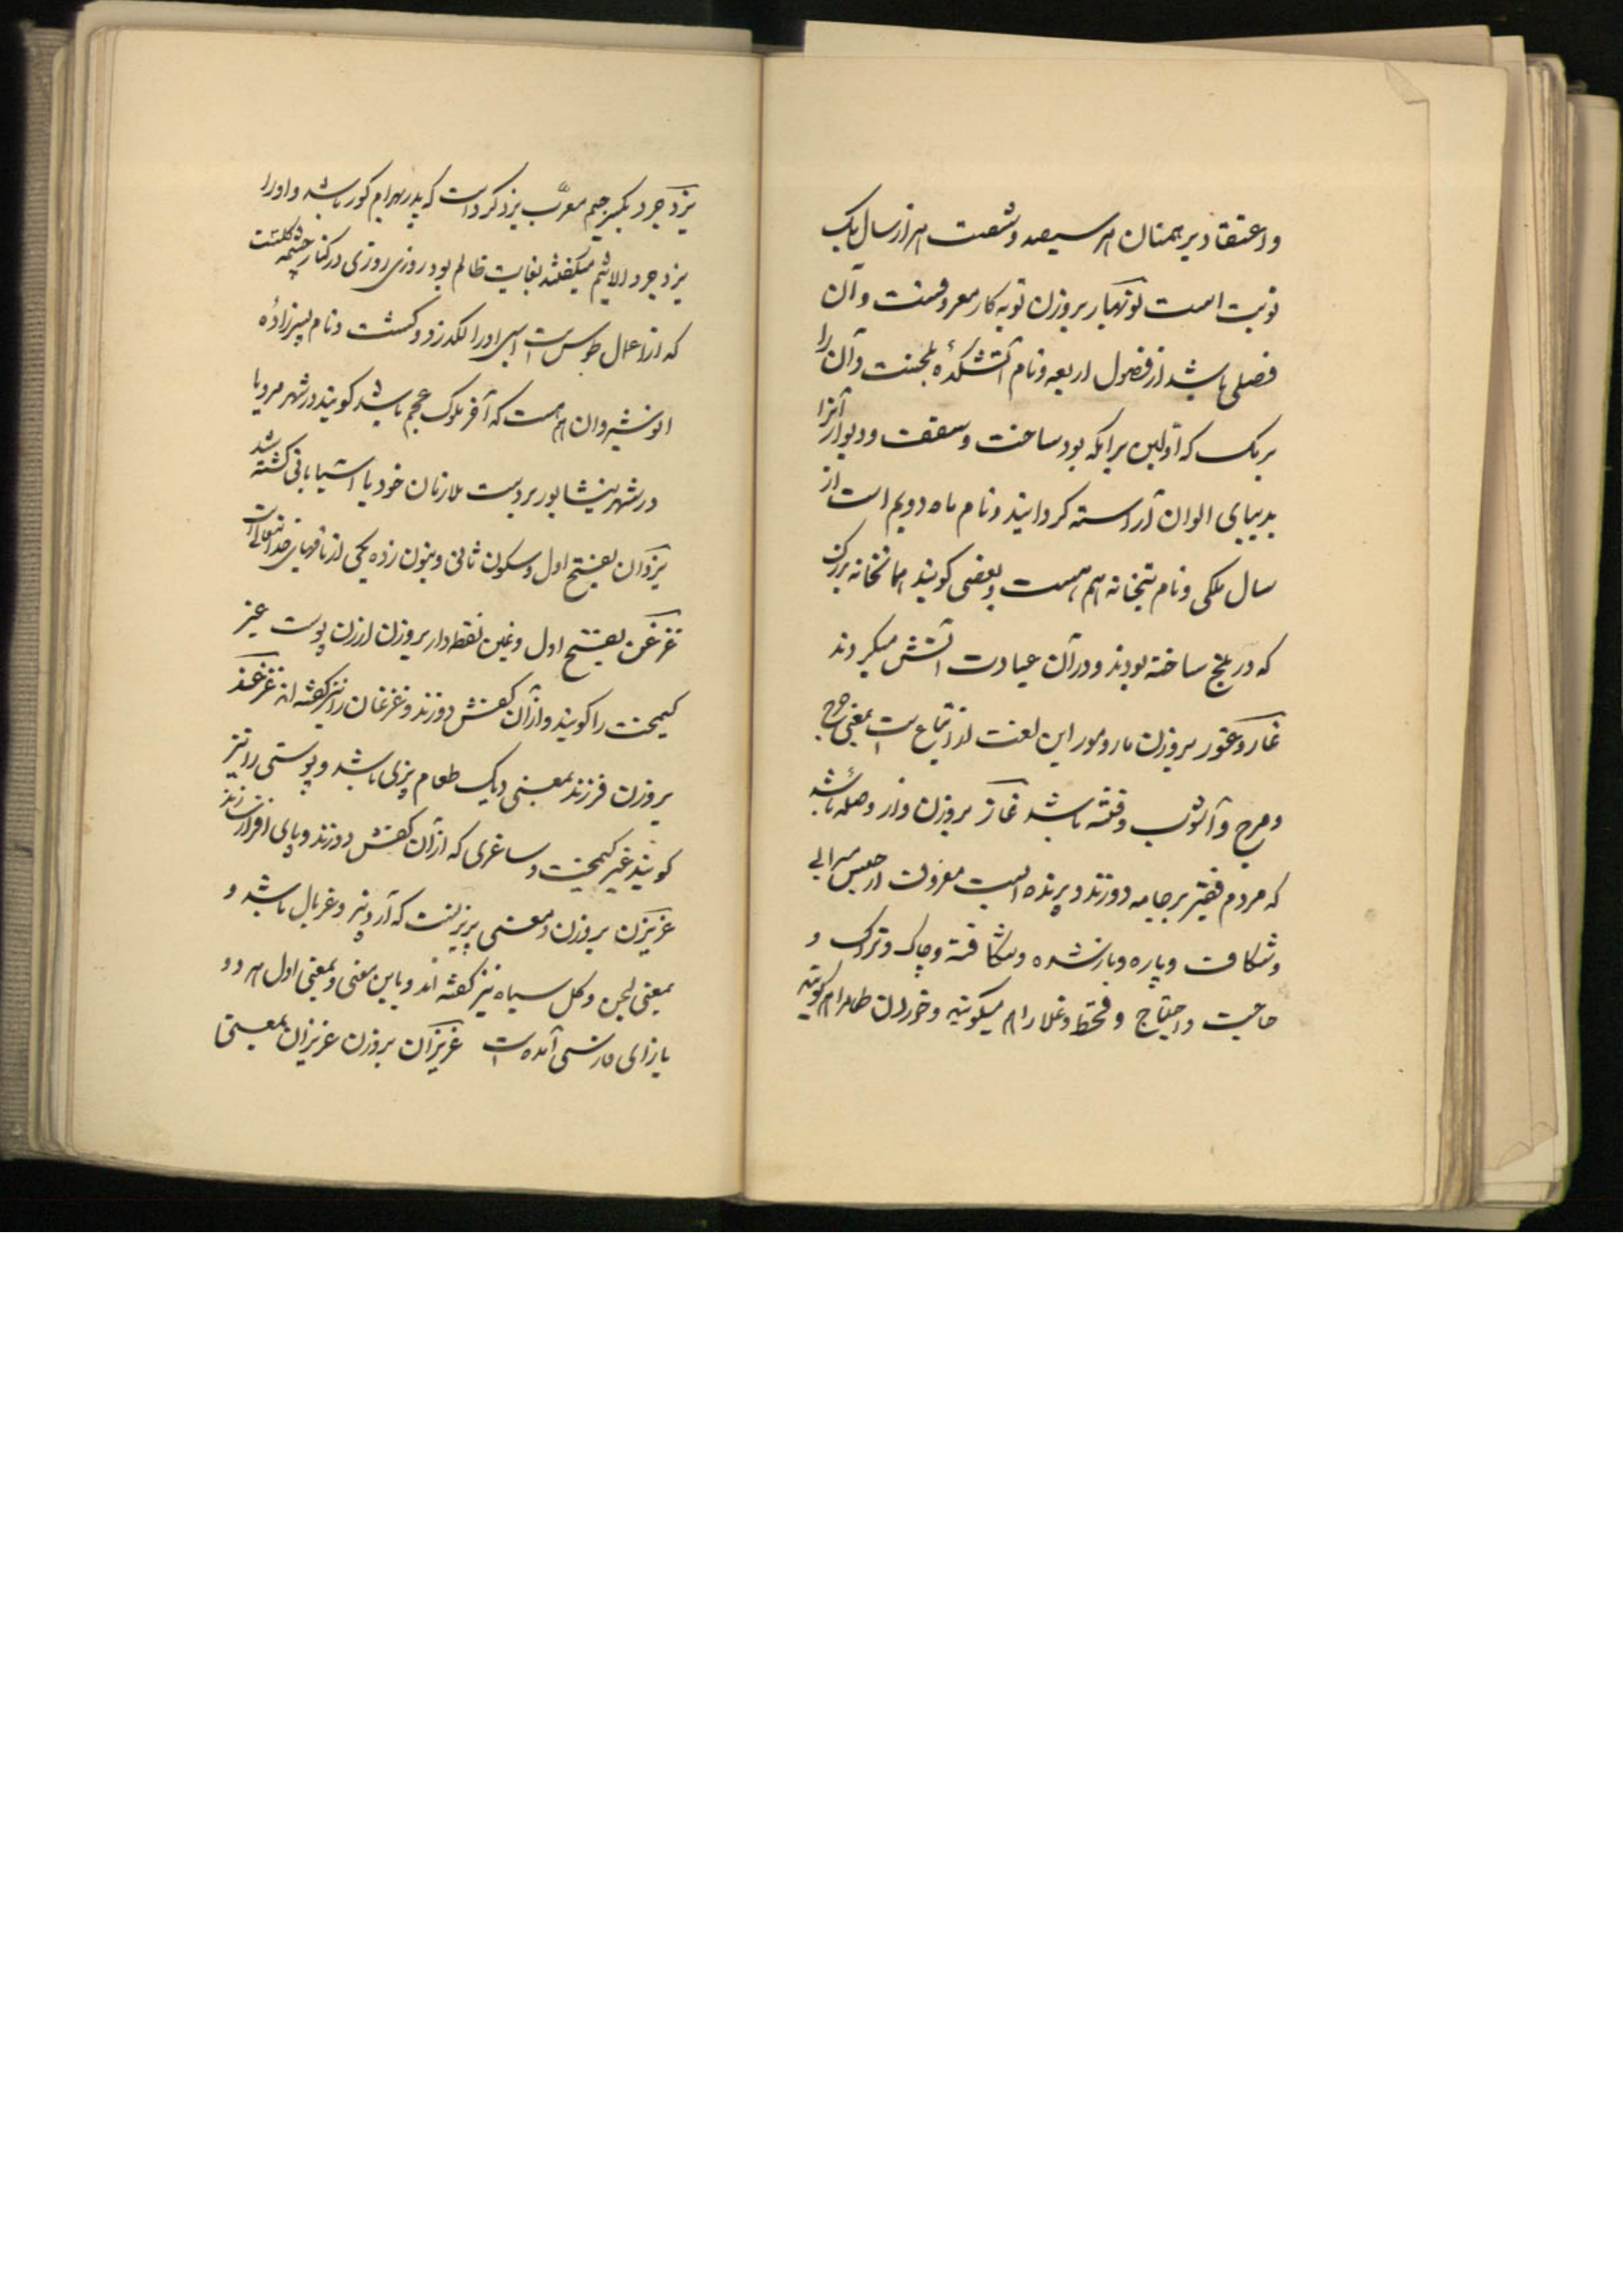 واعتقاد برهمنان هر سیصد و شصت هزار سال یک
نوبت است نوبهار بر وزن توبه کار معروفست و آن
فصلی باشد از فصول اربعه و نام آتشکدهٔ بلخست و آن را
برمک که اولین برامکه بود ساخت و سقف و دیوار آنرا
بدیبای الوان آراسته گردانید و نام ماه دویم است از
سال ملکی و نام بتخانه هم هست و بعضی گویند همانخانه بزرگ
که در بلخ ساخته بودند و در آن عبادت آتش میکردند
غار و غور بر وزن مار و مور این لغت از اتباع است بمعنی هرج
و مرج و آشوب و فتنه باشد غاز بر وزن واز وصله باشد
که مردم فقیر بر جامه دوزند و پرنده ایست معروف از جنس مرغابی
و شکاف و پاره و باز شده و شکافته و چاک و ترک و
حاجت و احتیاج و قحط و غلا را هم میگویند و خوردن طعام را هم گویند
یزدجرد بکسر جیم معرّب یزدکرد است که پدر بهرام کور باشد و او را
یزدجرد الاثیم میگفتند بغایت ظالم بود روزی روزی در کنار چشمه گلشت
که از اعمال طوس است اسبی او را لگد زد و کشت و نام پسر زادهٔ
انوشیروان هم هست که آخر ملوک عجم باشد گویند در شهر مرو یا
در شهر نیشابور بر دست ملازمان خود یا آسیابانی کشته شد
یزدان بفتح اول و سکون ثانی و بنون زده یکی از نامهای خدایتعالی است
غرغن بفتح اول و غین نقطه دار بر وزن ارزن پوست غیر
کیمخت را گویند و از آن کفش دوزند و غرغان را نیز گفته اند غرغند
بر وزن فرزند بمعنی دیک طعام پزی باشد و پوستی را نیز
گویند غیر کیمخت و ساغری که از آن کفش دوزند و پای افزار سازند
غریزن بر وزن و معنی پرویزنست که آرد بیز و غربال باشد و
بمعنی لجن و کل سیاه نیز گفته اند و باین معنی و بمعنی اول هر دو
با زای فارسی آمده است غریزان بر وزن عزیزان بمعنی